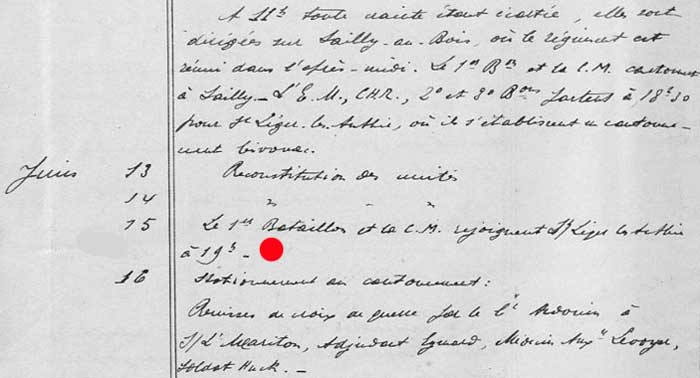 A 11h toute crainte étant écartée, elles sont
dirigées sur Sailly-au-Bois, où le régiment est
réuni dans l'après-midi. Le 1er Bon et la C.M. cantonnent
à Sailly - L'E.M., C.H.R., 2e et 3e Bons partent à 18h30
pour St Léger-les-Authie, où ils s'établissent en cantonne-
ment bivouac.
Juin 13 Reconstitution des unités
14 " " "
15 Le 1er Bataillon et la C.M. rejoignent St Léger les Authie
à 19h -
16 Stationnement au cantonnement :
Remises de croix de guerre par le Lt à
S/Lt Adjudant Médecin Auxre
Soldat Huck. -